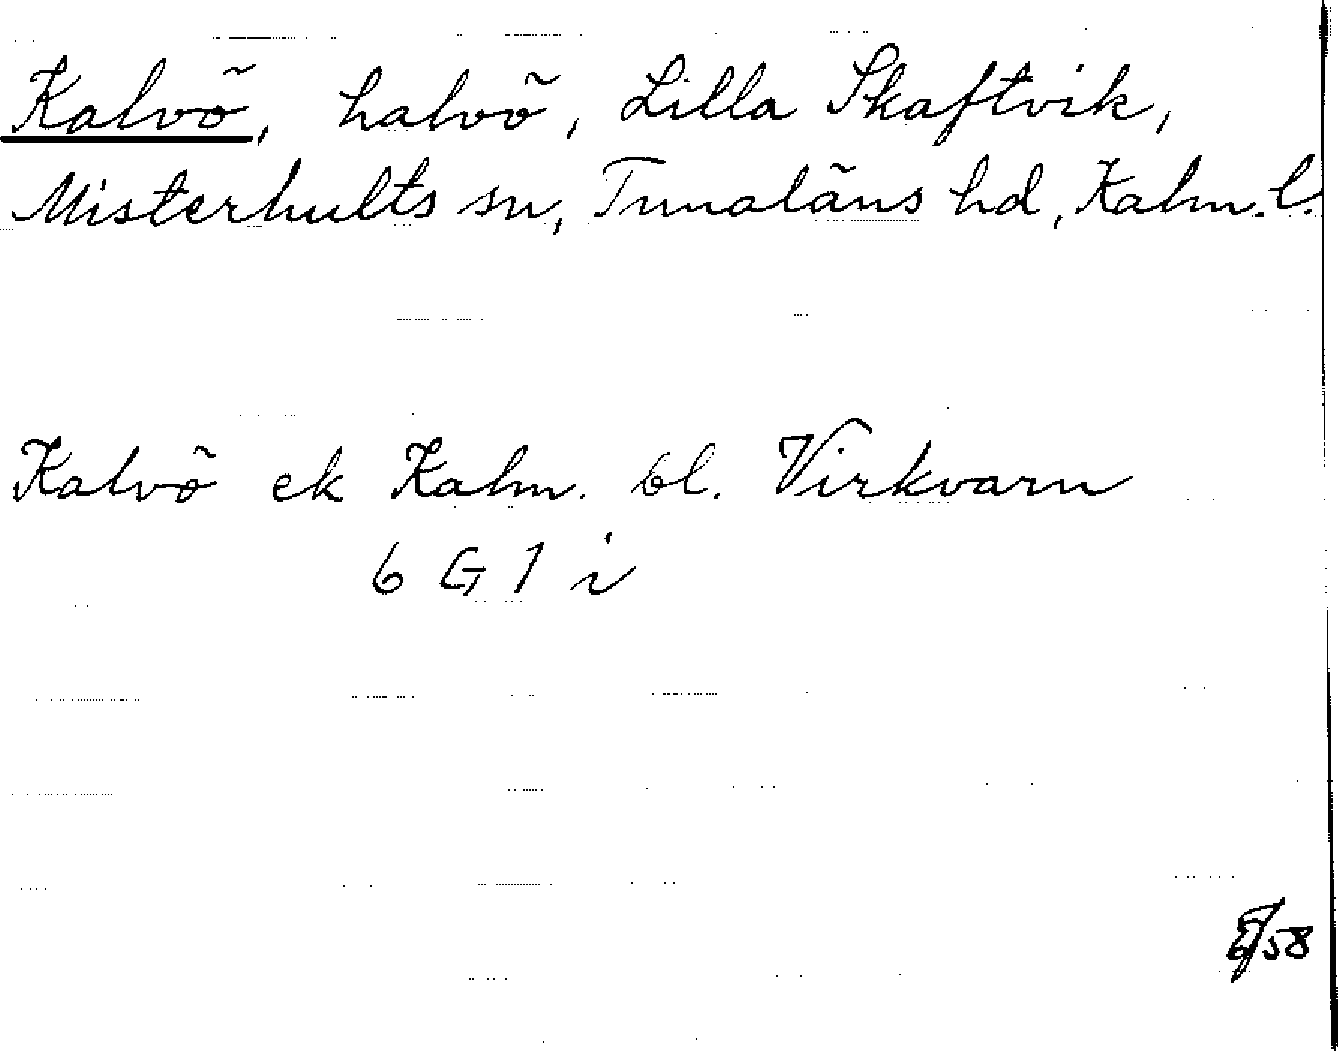 Kalvö, halvö, Lilla Skaftvik,
Misterhults sn, Tunaläns hd, Kalm. l.
Kalvö ek Kalm. bl. Virkvarn
6 G 1 i
58